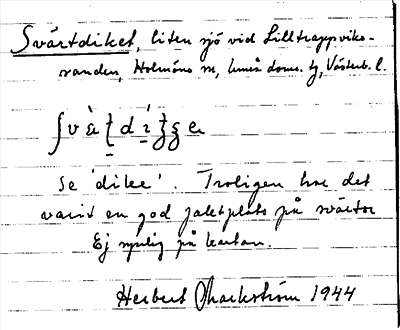 Svärtdiket, liten sjö vid Lilltrappviks-
randen, Holmöns sn, Umeå doms. tg, Västerb. l.
Se 'dike'. Troligen har det
varit en god jaktplats på svärtor
Ej synlig på kartan.
Herbert Markström 1944